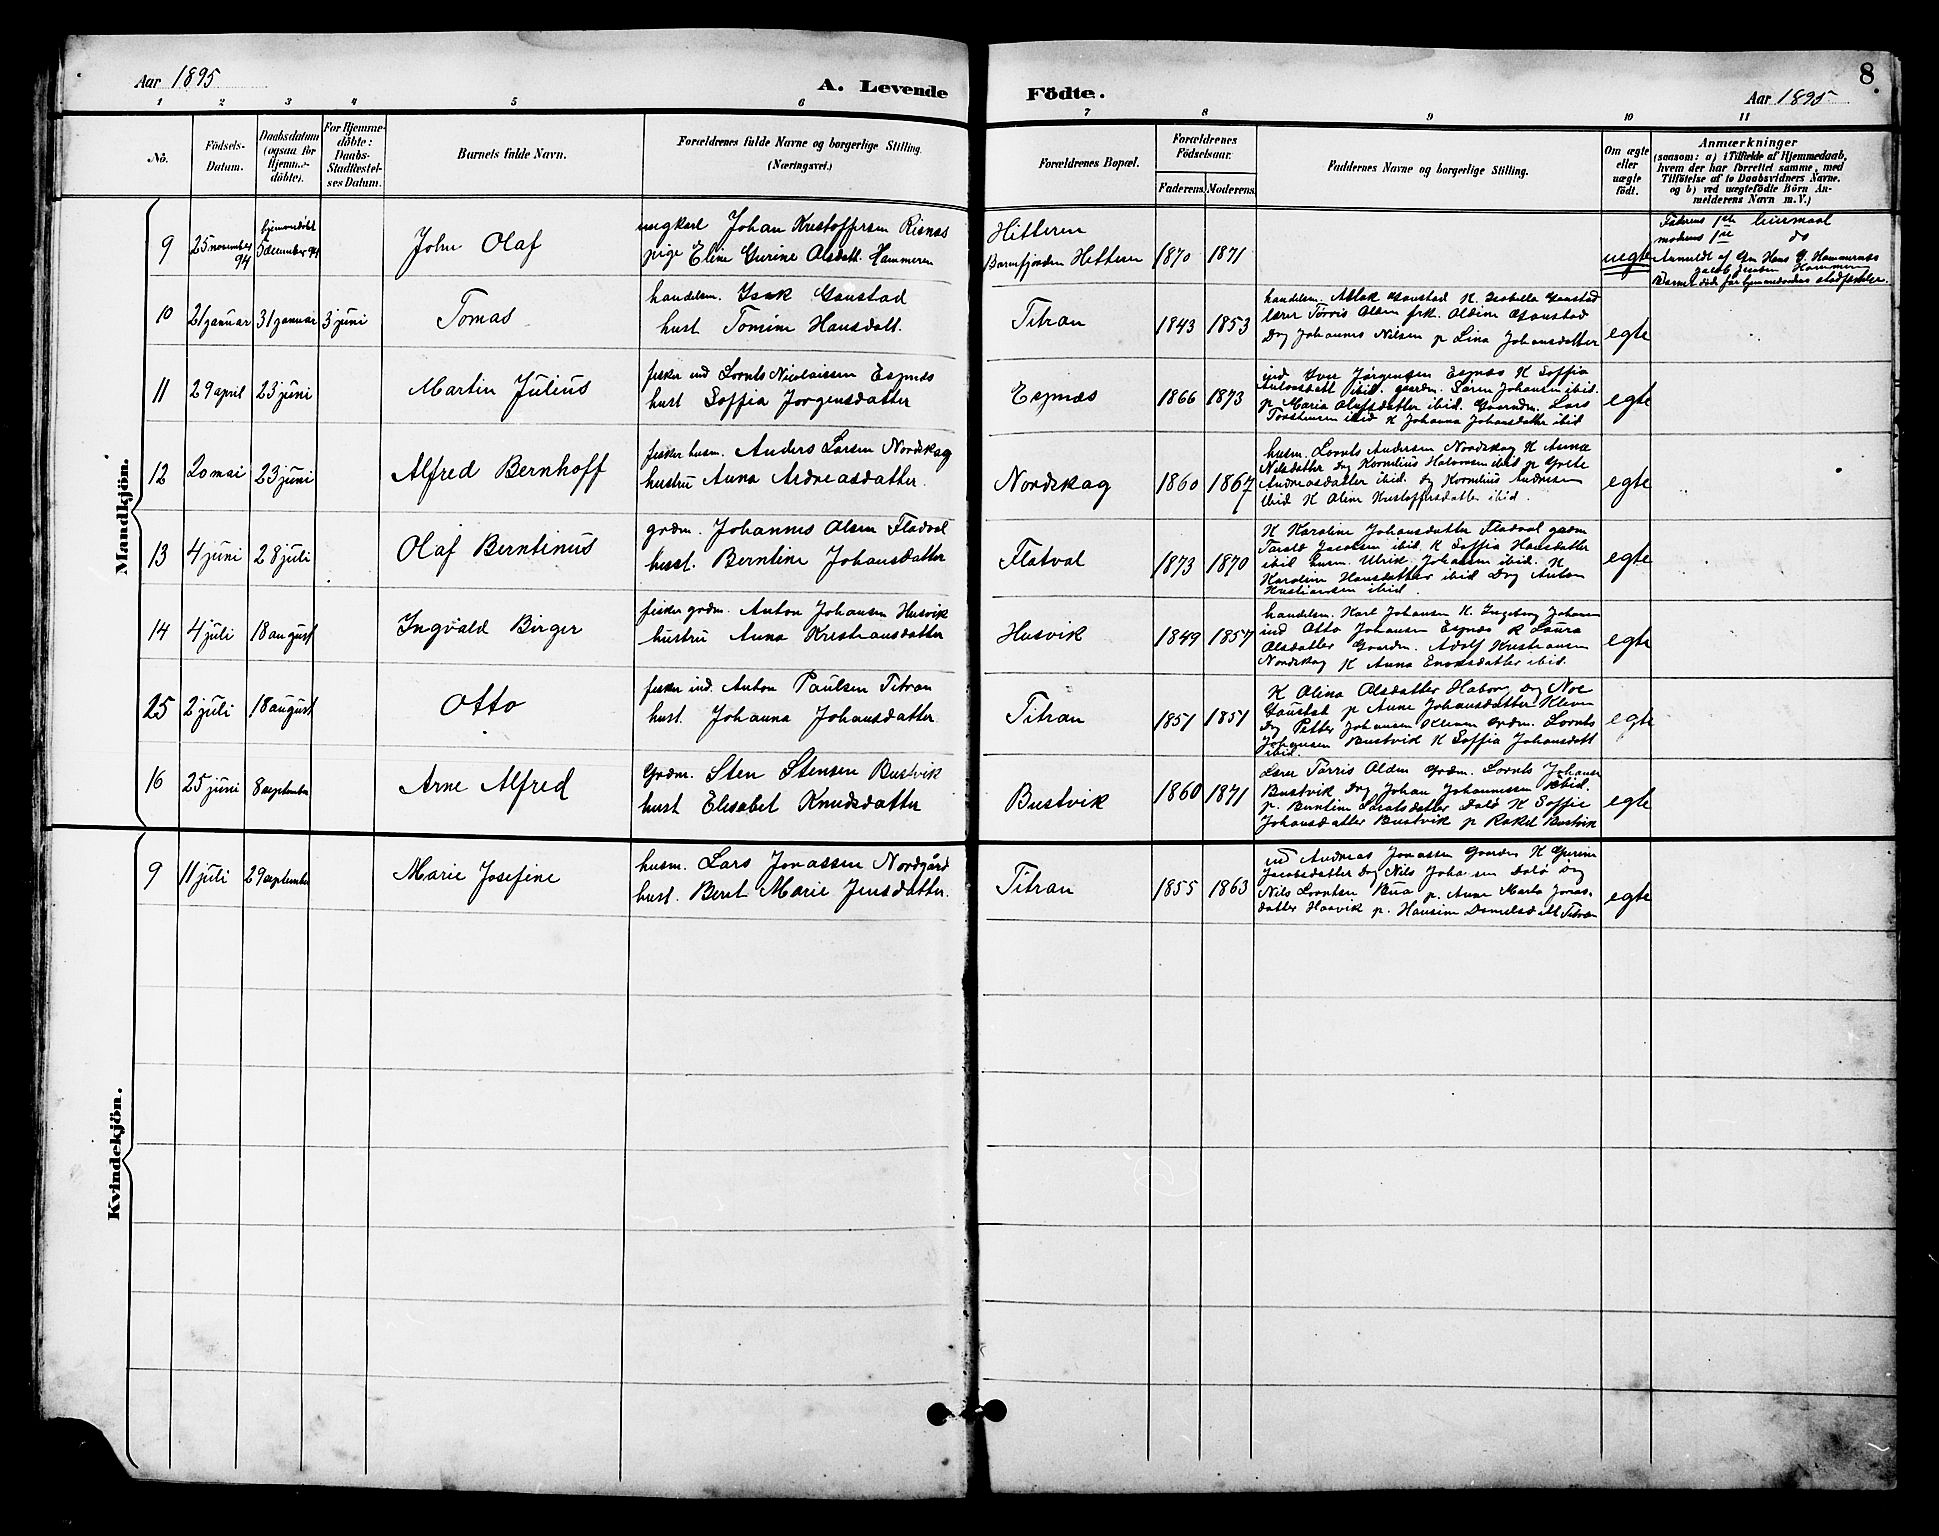 Aar 1895
A. Levende Födte.
8
Aar 1895
1 2 3 4 5 6 7 8 9 10 11
No.
Födsels-
Datum.
Daabsdatum
(ogsaa for
Hjemme-
döbte).
For Hjemme-
döbte:
Daabs-
Stadfæstel-
ses Datum.
Barnets fulde Navn.
Forældrenes fulde Navne og borgerlige Stilling.
(Næringsvei.)
Forældrenes Bopæl.
Forældrenes
Födselsaar.
Faderens.
Moderens.
Faddernes Navne og borgerlige Stilling.
Om ægte
eller
uægte
födt.
Anmærkninger
(saasom: a) i Tilfælde af Hjemmedaab,
hvem der har forrettet samme, med
Tilföielse af to Daabsvidners Navne.
og b) ved uægtefödte Börn An-
melderens Navn m. V.)
Mandkjön.
9
25 november
94
hjemmedøbt
5 december 94
John Olaf
ungkarl Johan Kristoffersen Risnæs
pige Eline Gurine Olsdatt. Hammeren
Hitteren
Barmfjorden Hitteren
1870 1871
uegte
Faderens 1ste leiermaal
moderens 1ste do
Anmeldt af Gm Hans G. Hammernæs
Jacob Jensen Hammeren
Barnet døde før hjemmedaabens stadfæstelse.
10
21 januar
31 januar
3 juni
Tomas
handelsm. Isak Gaustad
hust. Tomine Hansdatt.
Titran
1843 1853
handelsm. Aslak Gaustad K. Isabella Gaustad
lærer Torris Olden frk. Oldine Gaustad
Drg Johannes Nilsen p Lina Johansdatter
egte
11
29 april
23 juni
Martin Julius
fisker ind Lornts Nicolaissen Espnæs
hust Soffia Jørgensdatter
Espnæs
1866 1873
ind Iver Jørgensen Espnæs K Soffia
Antonsdatt ibid. gaardm. Søren Johansen ibid.
p Maria Olufsdatter ibid. Gaardm. Lars
Torstensen ibid K Johanna Johansdatter ibid
egte
12
20 mai
23 juni
Alfred Bernhoff
fisker husm. Anders Larsen Nordskag
hustru Anna Andreasdatter.
Nordskag
1860 1867
husm. Lornts Andersen Nordskag K Anna
Nilsdatter Drg Kornelius Halvorsen ibid p Grete
Andreasdatter ibid. Drg Kornelius Andresen
ibid K Oline Kristoffersdatter ibid.
egte
13
4 juni
28 juli
Olaf Berntinus
grdm. Johannes Olsen Flatval
hust. Berntine Johansdatter
Flatval
1873 1870
K Karoline Johansdatter Flatval gaardm
Tarald Jacobsen ibid. K Soffia Hansdatter
ibid husm. Ulrik Johansen ibid. K
Karoline Hansdatter ibid Drg Anton
Kristiansen ibid.
egte
14
4 juli
18 august
Ingvald Birger
fisker grdm. Anton Johansen Husvik
hustru Anna Kristiansdatter
Husvik
1849 1857
handelsm. Karl Johansen K. Ingeborg Johansen
ind Otto Johansen Espnæs K Laura
Olsdatter Gaardm. Adolf Kristiansen
Nordskag K Anna Enoksdatter ibid.
egte
25
2 juli
18 august
Otto
fisker ind. Anton Paulsen Titran
hust. Johanna Johansdatter.
Titran
1851 1851
K Olina Olsdatter Drg Noe
Gaustad p Anne Johansdatter Kleven
Drg Petter Johansen Kleven Grdm. Lornts
Johansen Bustvik K Soffia Johansdatt
ibid.
egte
16
25 juni
8 september
Arne Alfred
Grdm. Sten Stensen Bustvik
hust Elisabet Knudsdatter
Bustvik
1860 1871
Lærer Torris Olden Grdm. Lornts Johansen
Bustvik Drg Johan Johannessen ibid.
p. Berntine Dolø K Soffie
Johansdatter Bustvik p Rakel Bustvik
egte
Kvindekjön.
9
11 juli
29 september
Marie Josefine
husm. Lars Jonassen Nordgård
hust. Beret Marie Jensdatter.
Titran
1855 1863
ind Andreas Jonassen K Gurine
Jacobsdatter Drg Nils Johansen Dolø Drg
Nils Lorntsen Bua p. Anne Marta Jonas-
datter Haavik p. Hansine Danielsdatt Titran
egte